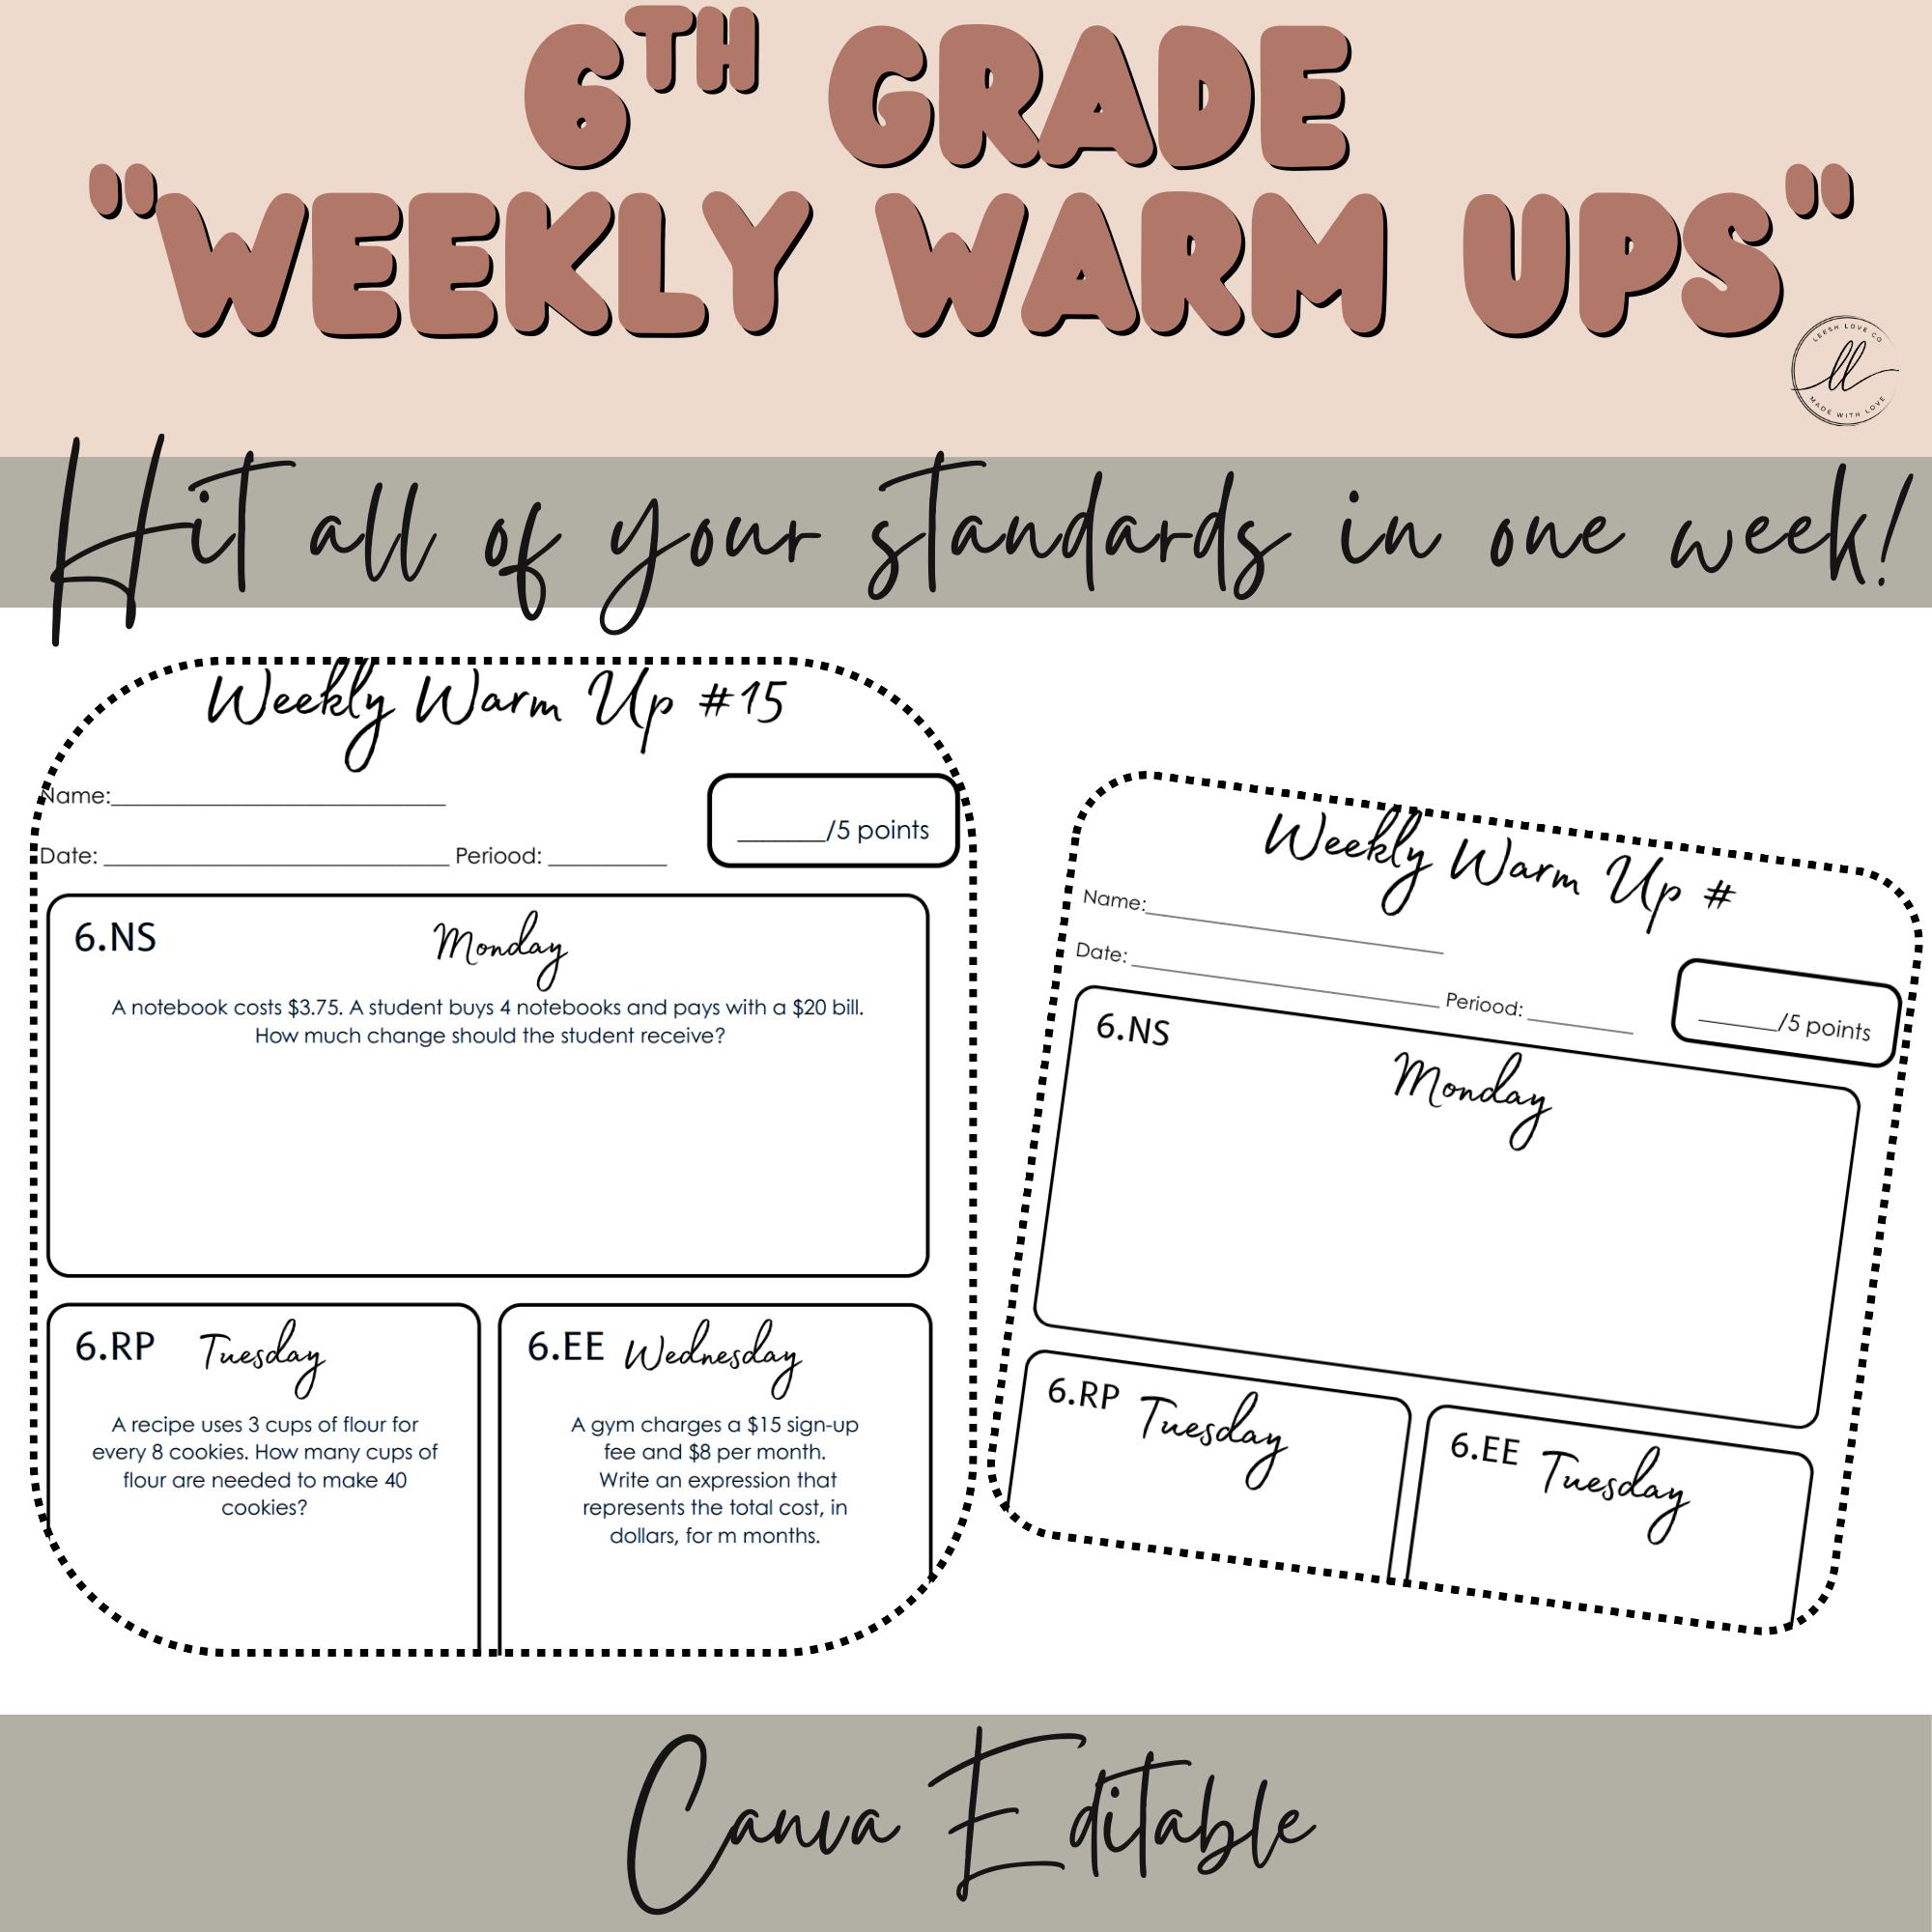 6TH GRADE
"WEEKLY WARM UPS"
LEESH LOVE CO
ll
MADE WITH LOVE
Hit all of your standards in one week!
Weekly Warm Up #15
Name:____________________
Date: ____________________ Periood: ________
______/5 points
6.NS Monday
A notebook costs $3.75. A student buys 4 notebooks and pays with a $20 bill.
How much change should the student receive?
6.RP Tuesday
A recipe uses 3 cups of flour for
every 8 cookies. How many cups of
flour are needed to make 40
cookies?
6.EE Wednesday
A gym charges a $15 sign-up
fee and $8 per month.
Write an expression that
represents the total cost, in
dollars, for m months.
Weekly Warm Up #
Name:____________________
Date: ____________________ Periood: ________
______/5 points
6.NS
Monday
6.RP Tuesday
6.EE Tuesday
Canva Editable